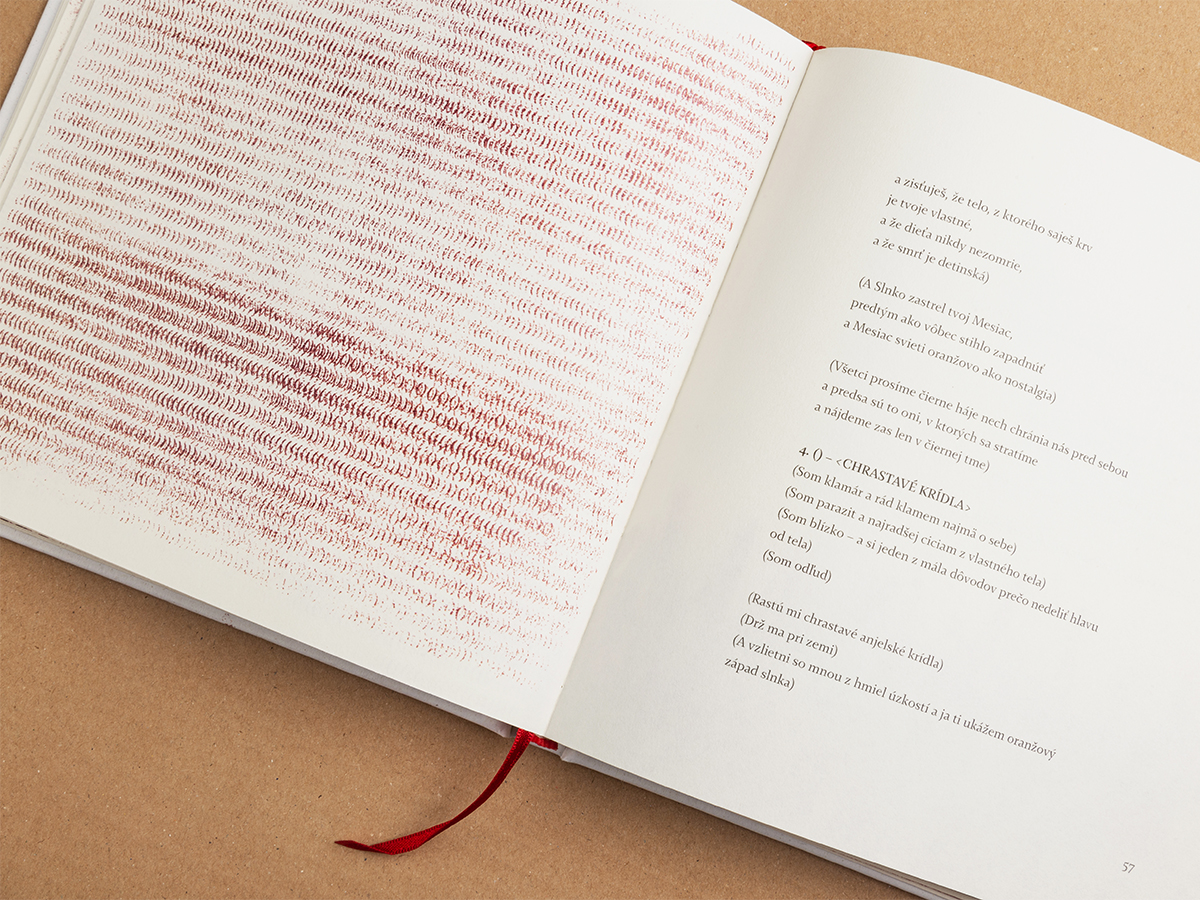 a zisťuješ, že telo, z ktorého saješ krv
je tvoje vlastné,
a že dieťa nikdy nezomrie,
a že smrť je detinská)
(A Slnko zastrel tvoj Mesiac,
predtým ako vôbec stihlo zapadnúť
a Mesiac svieti oranžovo ako nostalgia)
(Všetci prosíme čierne háje nech chránia nás pred sebou
a predsa sú to oni, v ktorých sa stratíme
a nájdeme zas len v čiernej tme)
4. () – <CHRASTAVÉ KRÍDLA>
(Som klamár a rád klamem najmä o sebe)
(Som parazit a najradšej ciciam z vlastného tela)
(Som blízko – a si jeden z mála dôvodov prečo nedeliť hlavu
od tela)
(Som odľud)
(Rastú mi chrastavé anjelské krídla)
(Drž ma pri zemi)
(A vzlietni so mnou z hmiel úzkostí a ja ti ukážem oranžový
západ slnka)
57